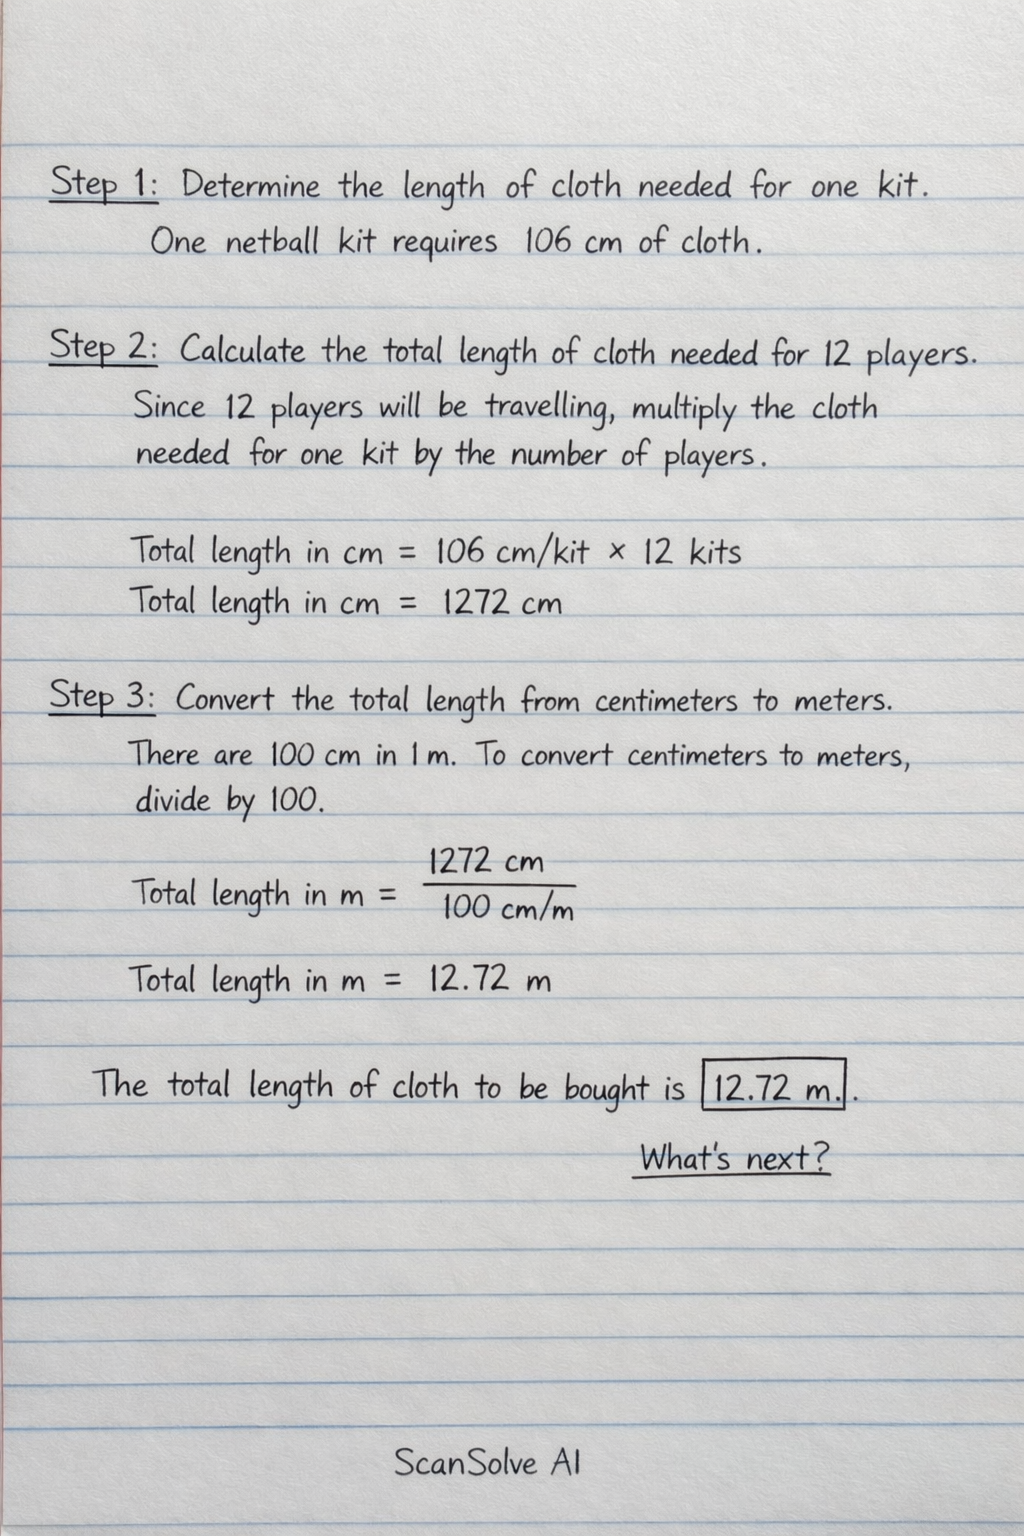 Step 1: Determine the length of cloth needed for one kit.
One netball kit requires 106 cm of cloth.
Step 2: Calculate the total length of cloth needed for 12 players.
Since 12 players will be travelling, multiply the cloth
needed for one kit by the number of players.
Total length in cm = 106 cm/kit × 12 kits
Total length in cm = 1272 cm
Step 3: Convert the total length from centimeters to meters.
There are 100 cm in 1 m. To convert centimeters to meters,
divide by 100.
1272 cm
Total length in m =
100 cm/m
Total length in m = 12.72 m
The total length of cloth to be bought is 12.72 m..
What's next?
ScanSolve AI